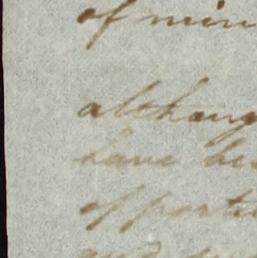 of min
althoug
have be
opportu
and